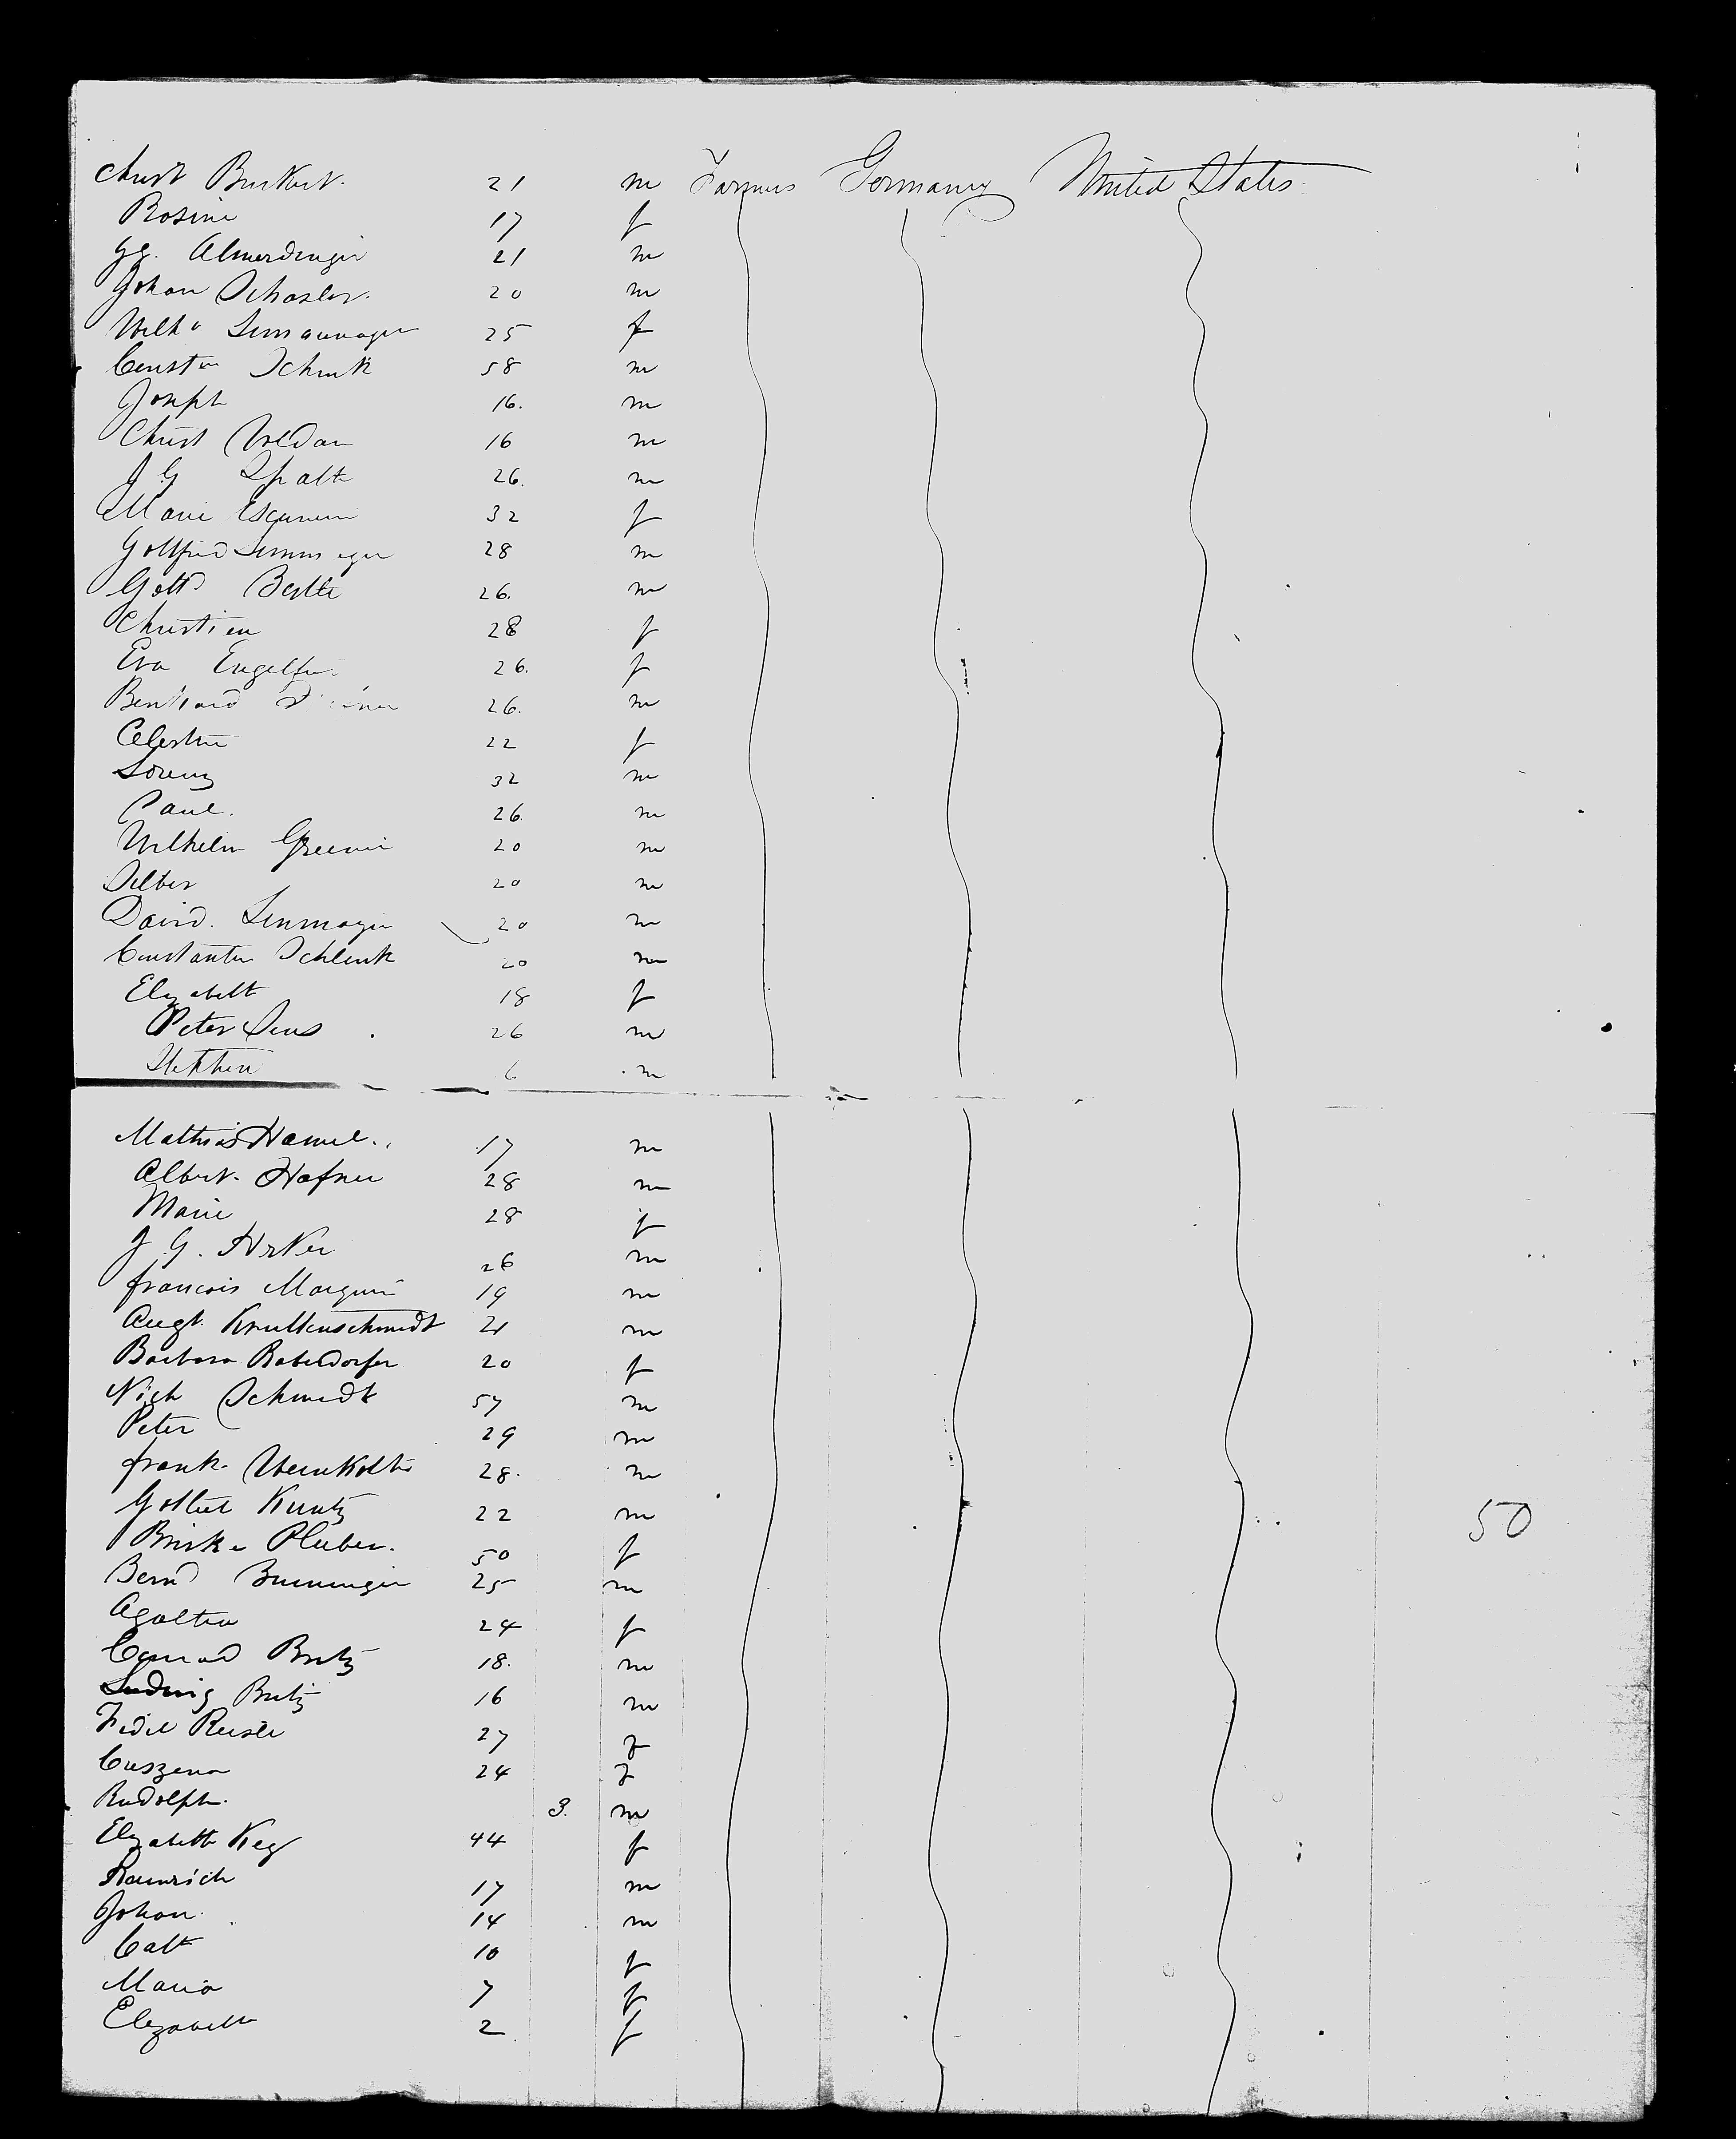 Christ Burkert. 21 m Farmers Germany United States
Rosine 17 f
Gg. Almerdinger 21 m
Johan Schasler. 20 m
25 f
Schenk 58 m
Joseph 16. m
Christ Weldan 16 m
J G Spath 26. m
Marie 32 f
Gottfried 28 m
Gottd Bertle 26. m
Christien 28 f
Eva 26. f
Bernhard 26. m
Celestine 22 f
Lorenz 32 m
Paul. 26. m
Wilhelm 20 m
Silber 20 m
David. Linmayer 20 m
Constantin Schlenk 20 m
Elizabeth 18 f
Peter 26 m
Stephen 6 m
Mathias Hamel. 17 m
Albert. Hafner 28 m
Marie 28 f
J. G. 26 m
francois Marquis 19 m
Augt. Krullenschmidt 21 m
Barbara Rabedorfer 20 f
Nich Schmidt 57 m
Peter 29 m
frank. 28. m
Gotlieb Kuntz 22 m 50
Pluber. 50 f
Bernd 25 m
Agatha 24 f
Conrad Britz 18. m
Ludwig Britz 16 m
Fidel Reisle 27 f
Creszena 24 f
Rudolph. 3. m
Elizabeth Keg 44 f
Heinrich 17 m
Johan. 14 m
Cath 10 f
Maria 7 f
Elezabeth 2 f